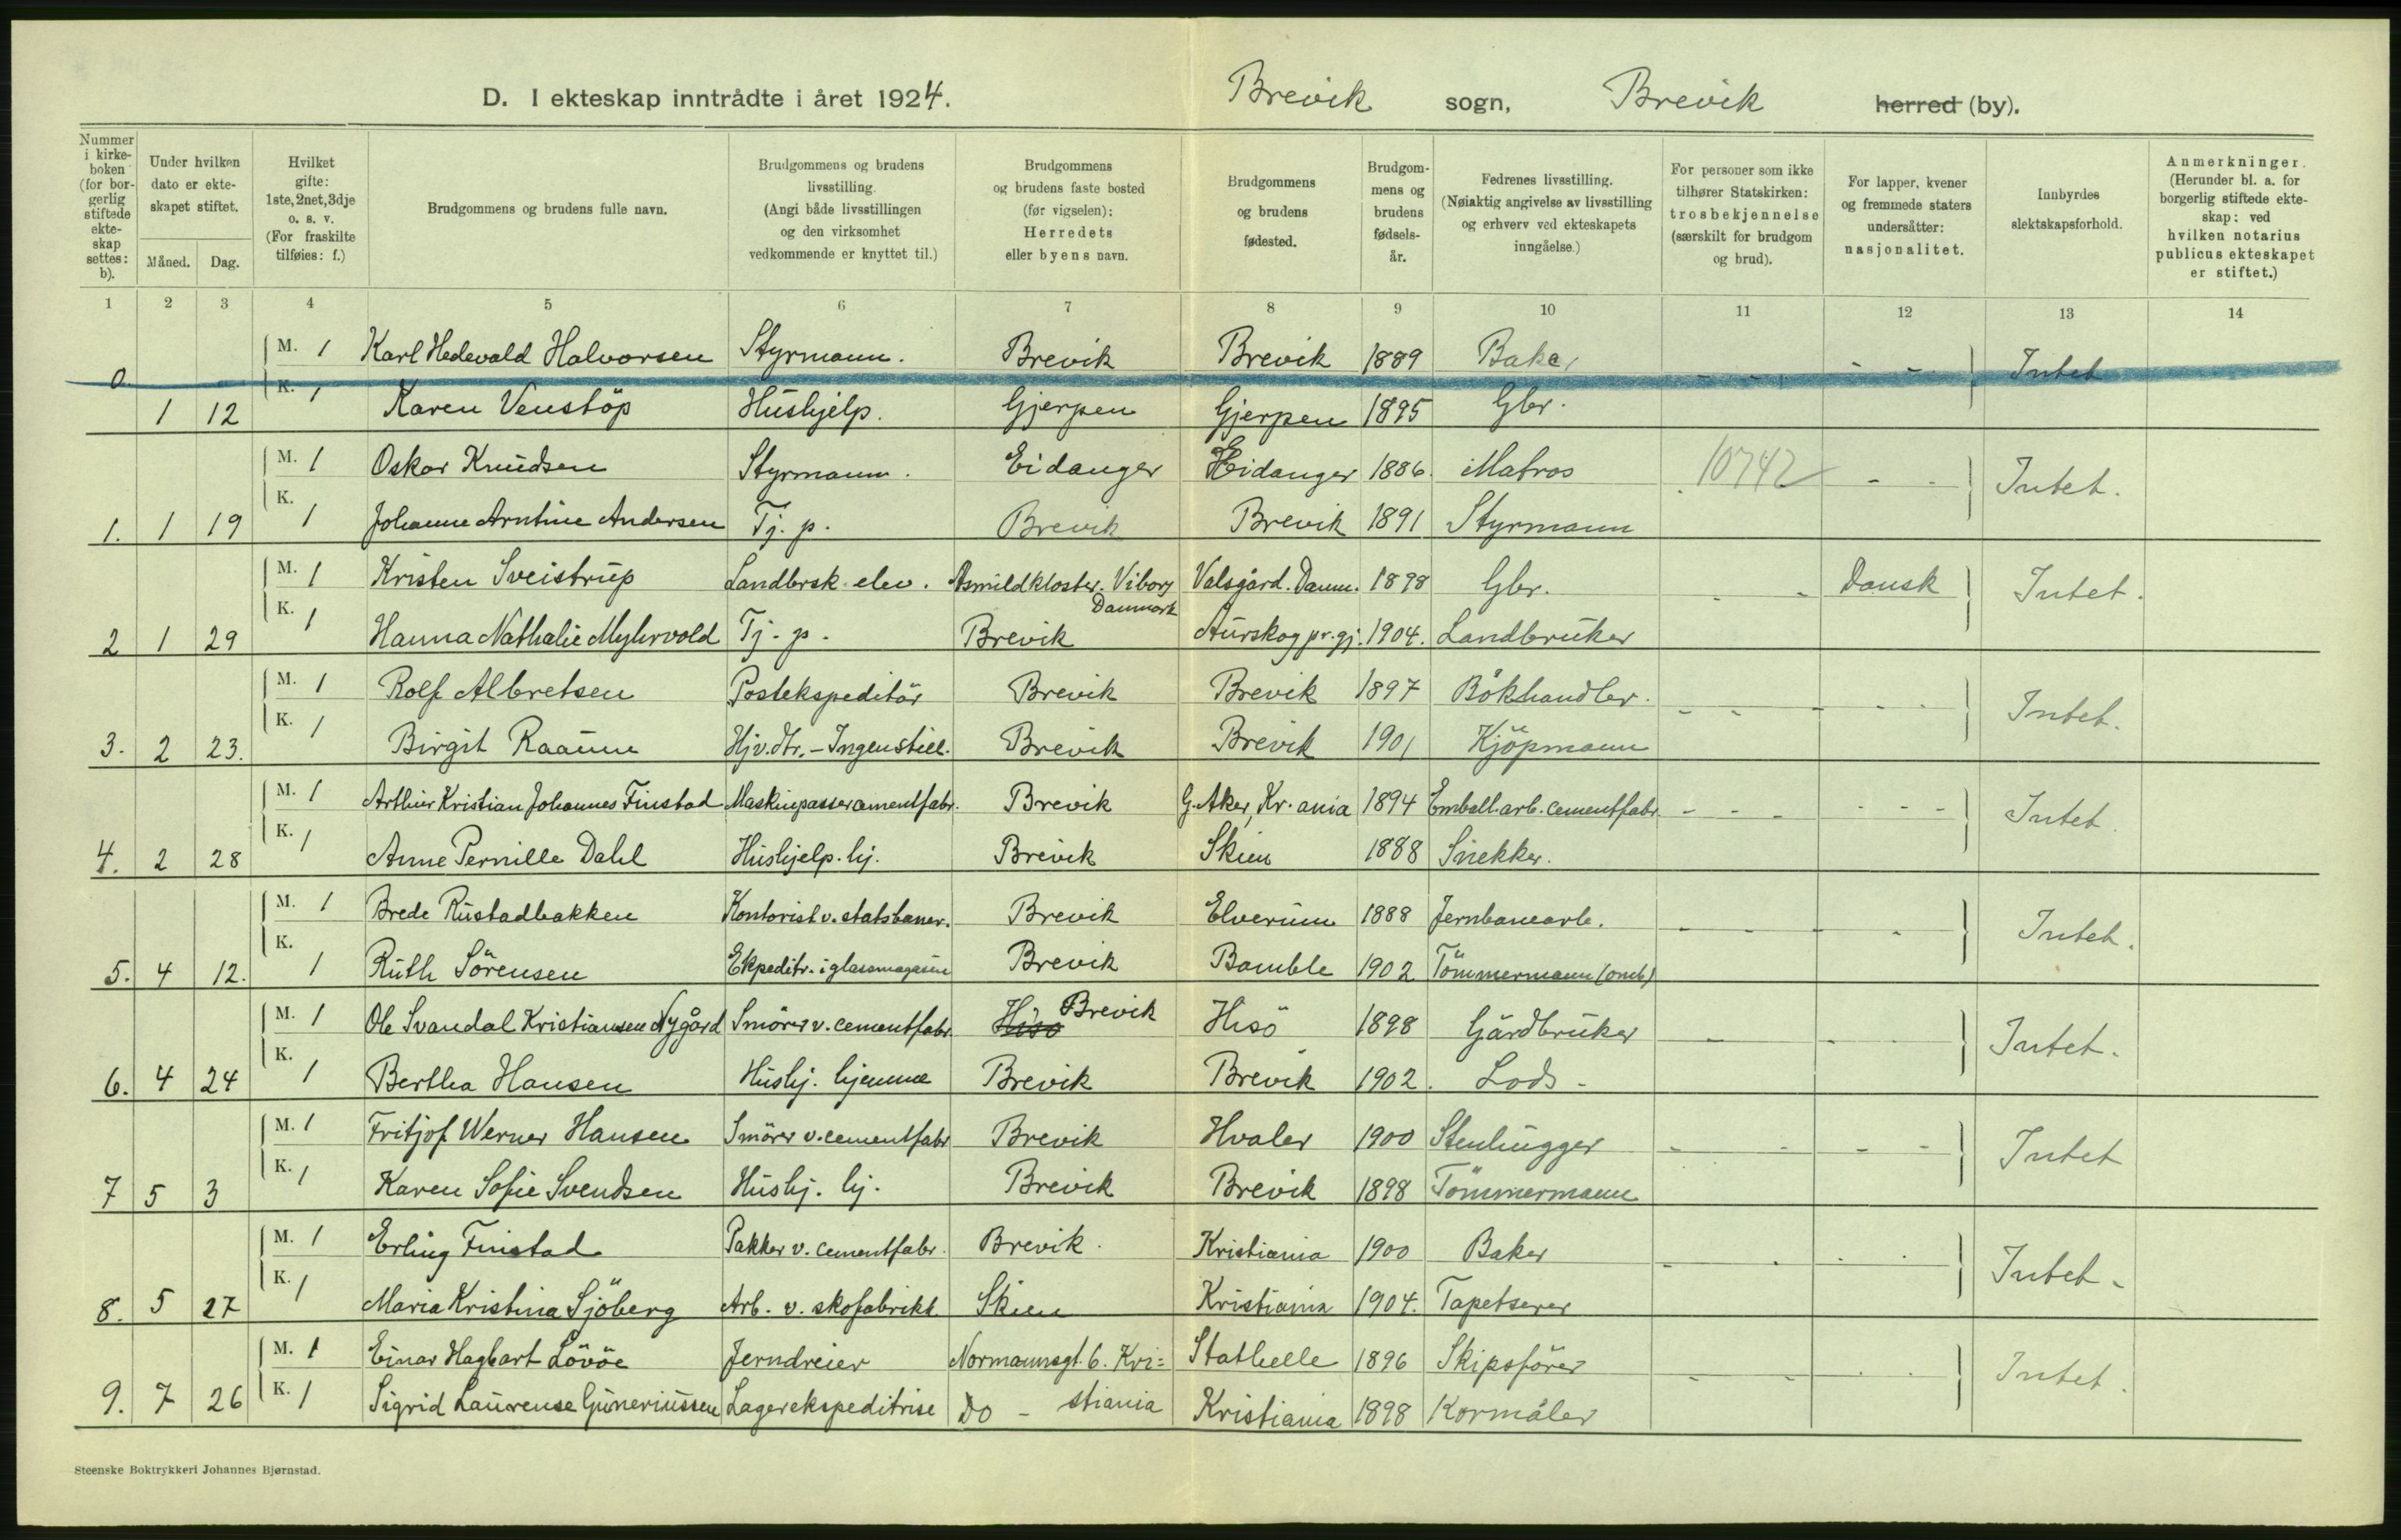 D. I ekteskap inntrådte i året 1924. Brevik sogn, Brevik herred (by).
Nummer i kirke-boken (for bor-gerlig stiftede ekte-skap settes: b).
Under hvilken dato er ekte-skapet stiftet.
Måned. Dag.
Hvilket gifte: 1ste, 2net, 3dje o. s. v. (For fraskilte tilføies: f.)
Brudgommens og brudens fulle navn.
Brudgommens og brudens livsstilling. (Angi både livsstillingen og den virksomhet vedkommende er knyttet til.)
Brudgommens og brudens faste bosted (før vigselen): Herredets eller byens navn.
Brudgommens og brudens fødested.
Brudgom-mens og brudens fødsels-år.
Fedrenes livsstilling. (Nøiaktig angivelse av livsstilling og erhverv ved ekteskapets inngåelse.)
For personer som ikke tilhører Statskirken: trosbekjennelse (særskilt for brudgom og brud).
For lapper, kvener og fremmede staters undersåtter: nasjonalitet.
Innbyrdes slektskapsforhold.
Anmerkninger. (Herunder bl. a. for borgerlig stiftede ekte-skap: ved hvilken notarius publicus ekteskapet er stiftet.)
1 2 3 4 5 6 7 8 9 10 11 12 13 14
M. 1 Karl Hedevald Halvorsen Styrmann. Brevik Brevik 1889 Baker - - - - Intet
0 1 12 K. 1 Karen Venstöp Hushjelp. Gjerpen Gjerpen 1895 Gbr.
M. 1 Oskar Knudsen Styrmann. Eidanger Eidanger 1886. Matros 10742 - - Intet.
1. 1 19 K. 1 Johanne Arntine Andersen Tj. p. Brevik Brevik 1891 Styrmann
M. 1 Kristen Sveistrup Landbrsk. elev. Asmildkloster. Viborg Danmark Valsgård. Danm. 1898 Gbr. - - Dansk Intet.
2 1 29 K. 1 Hanna Nathalie Myhrvold Tj. p. Brevik Aurskog pr.gj. 1904. Landbruker
M. 1 Rolf Albretsen Postekspeditör Brevik Brevik 1897 Bokhandler. - - - - - Intet.
3. 2 23. K. 1 Birgit Raaum Hjv. dtr. - Ingen still. Brevik Brevik 1901 Kjöpmann
M. 1 Arthur Kristian Johannes Finstad Maskinpasser cementfabr. Brevik G. Aker, Kr.ania 1894 Emball. arb. cementfabr. - - - - - - Intet.
4. 2 28 K. 1 Anne Pernille Dahl Hushjelp. hj. Brevik Skien 1888 Snekker.
M. 1 Brede Rustadbakken Kontorist v. statsbaner. Brevik Elverum 1888 Jernbanearb. - - - - Intet.
5. 4 12. K. 1 Ruth Sörensen Ekpeditr. i glassmagasin Brevik Bamble 1902 Tömmermann (omb)
M. 1 Ole Svandal Kristiansen Nygård Smörer v. cementfabr. Hisö Brevik Hisö 1898 Gårdbruker - - - Intet.
6. 4 24 K. 1 Bertha Hansen Hushj. hjemme Brevik Brevik 1902. Lods -
M. 1 Fritjof Werner Hansen Smörer v. cementfabr Brevik Hvaler 1900 Stenhugger - - - - Intet
7 5 3 K. 1 Karen Sofie Svendsen Hushj. hj. Brevik Brevik 1898 Tömmermann
M. 1 Erling Finstad Pakker v. cementfabr. Brevik. Kristiania 1900 Baker - - - - Intet -
8. 5 27 K. 1 Maria Kristina Sjöberg Arb. v. skofabrikk Skien Kristiania 1904. Tapetserer
M. 1 Einar Hagbart Lövöe Jerndreier Normannsgt. 6. Kri= Stathelle 1896 Skipsförer - - - - Intet.
9. 7 26 K. 1 Sigrid Laurense Guneriussen Lagerekspeditrise Do - stiania Kristiania 1898 Kormåler
Steenske Boktrykkeri Johannes Bjørnstad.